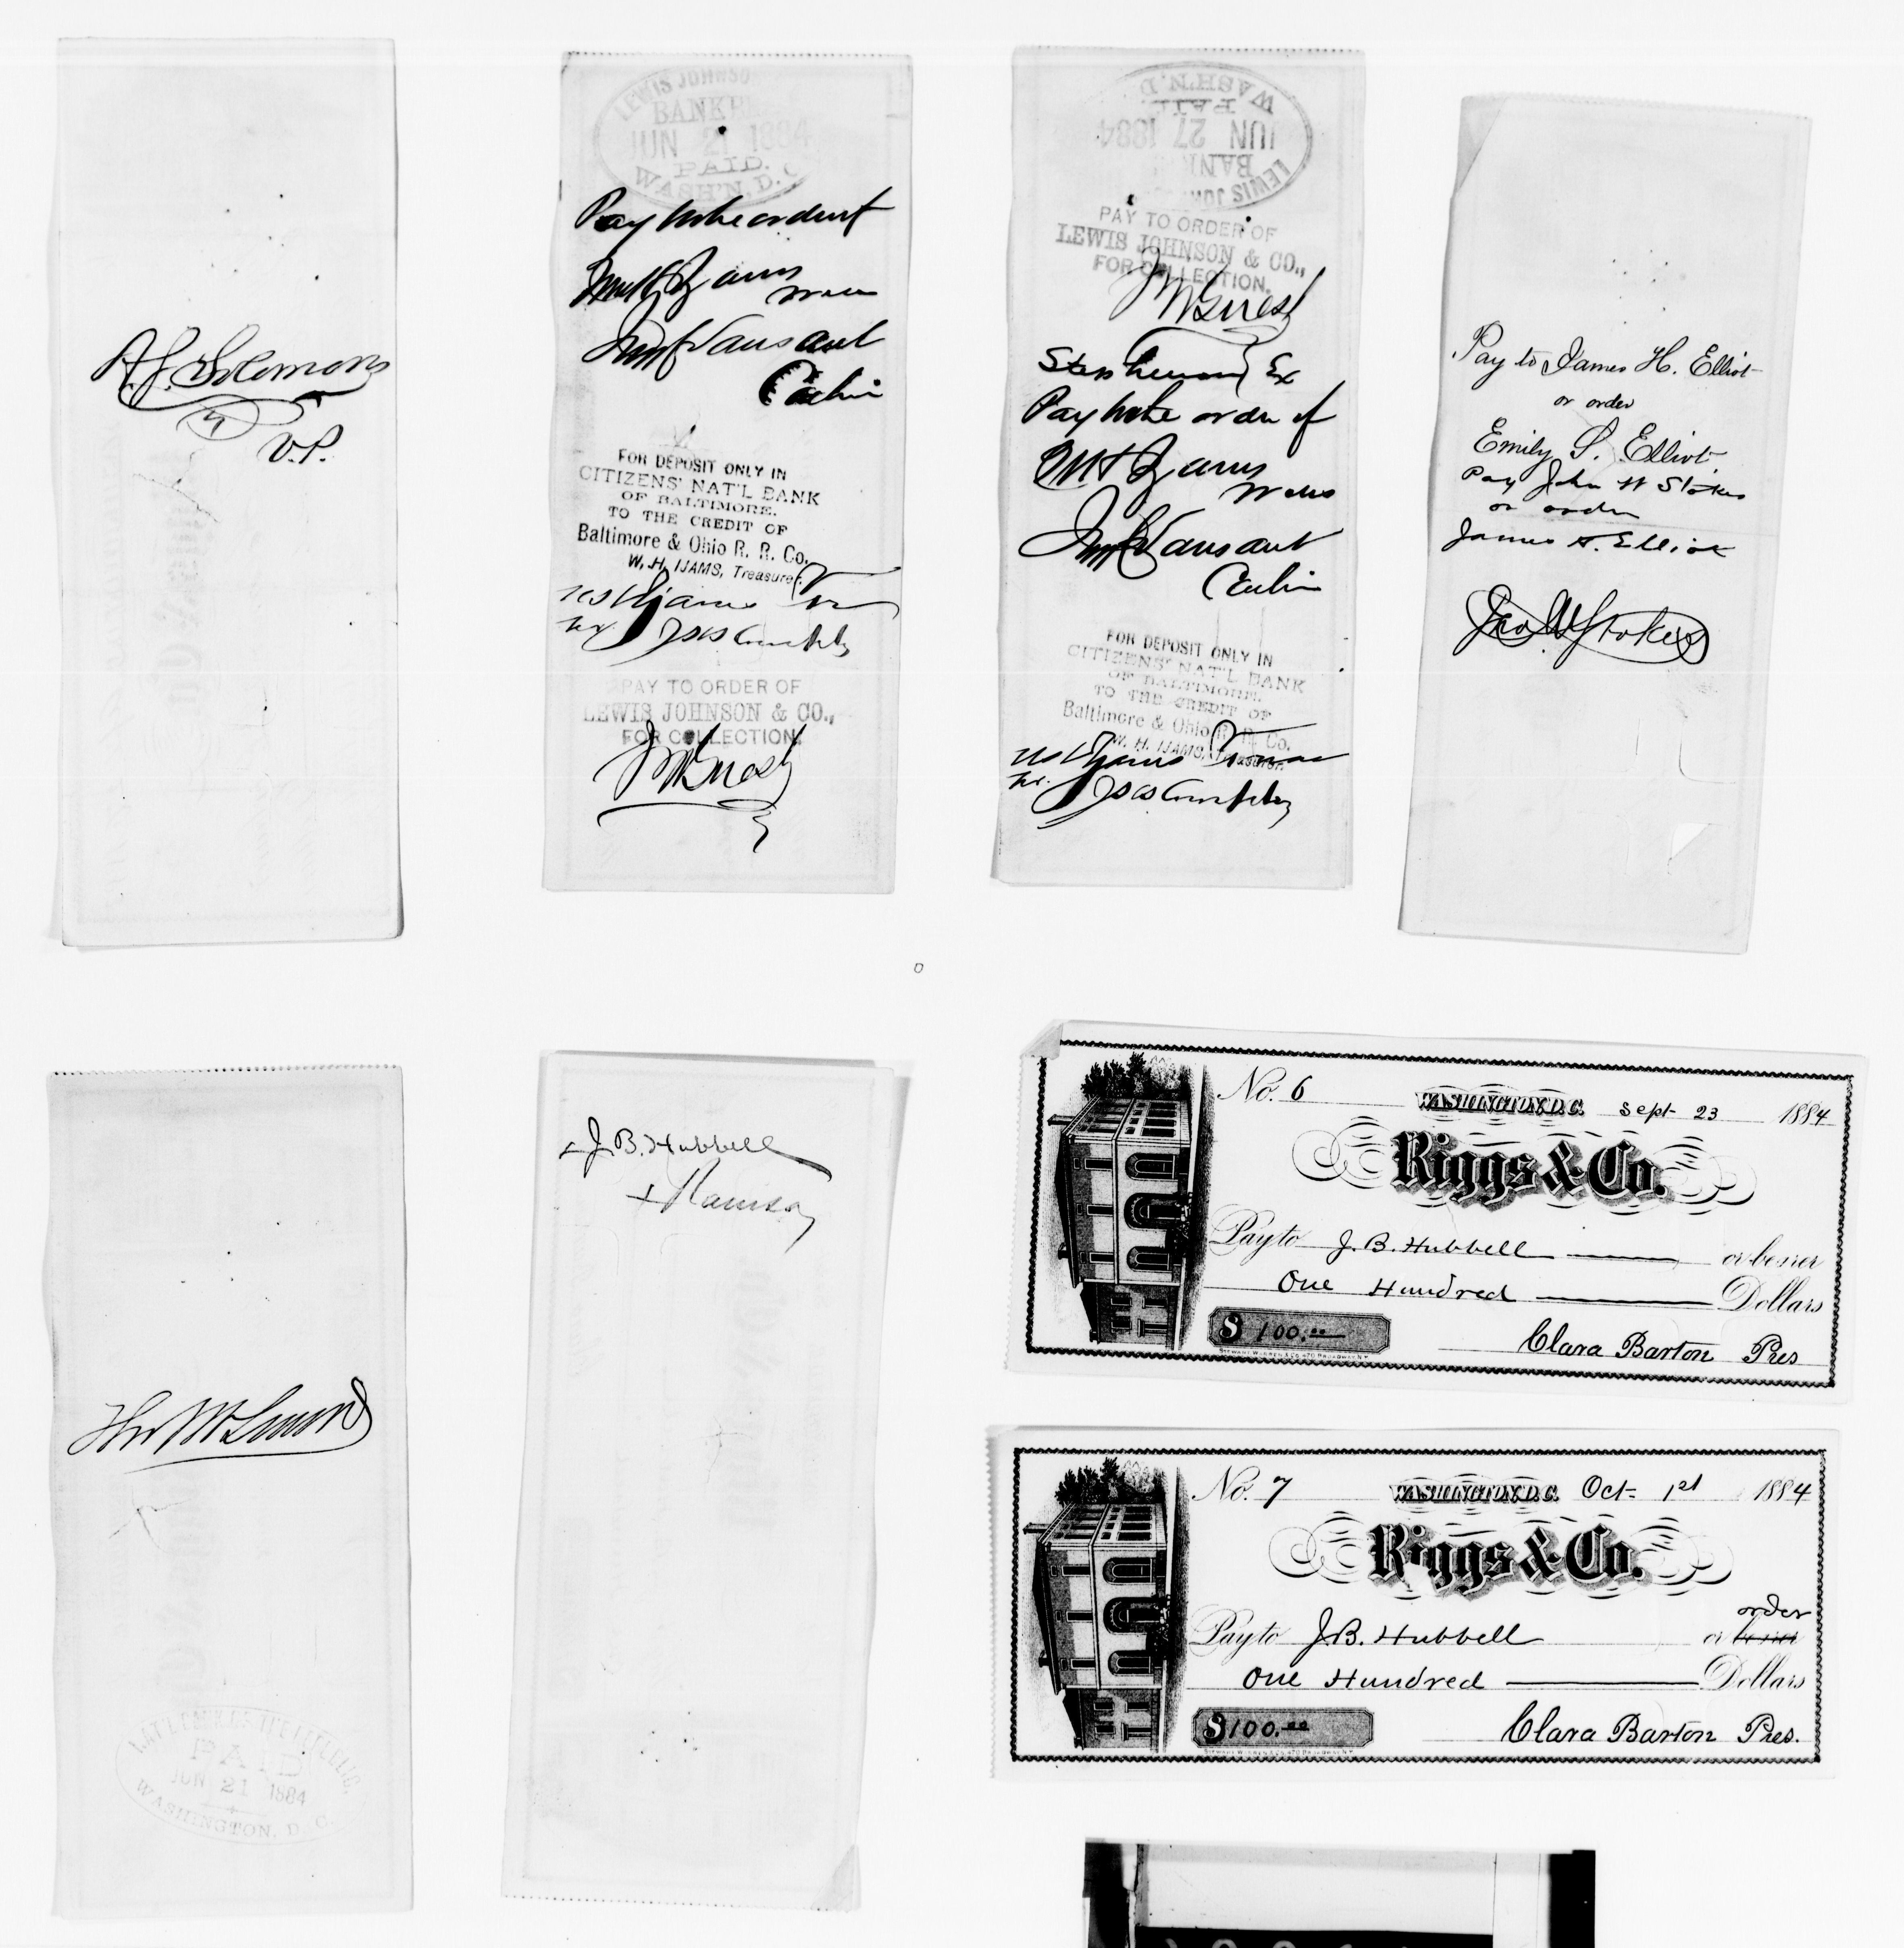 A. S. Solomons
V.P.
LEWIS JOHNSO
BANKE
JUN 21 1884
PAID.
WASH'N, D. C
Pay to the order of
Jno F Vansant
Cashier
FOR DEPOSIT ONLY IN
CITIZENS' NAT'L BANK
OF BALTIMORE.
TO THE CREDIT OF
Baltimore & Ohio R. R. Co.
W. H. IJAMS, Treasurer.
W H Ijams
PAY TO ORDER OF
LEWIS JOHNSON & CO.,
FOR COLLECTION.
LEWIS JOHNS
BANK
JUN 27 1884
PAID
WASH'N, D
PAY TO ORDER OF
LEWIS JOHNSON & CO.,
FOR COLLECTION.
Stephenson Ex
Pay to the order of
Jno F Vansant
Cashier
FOR DEPOSIT ONLY IN
CITIZENS' NAT'L BANK
OF BALTIMORE.
TO THE CREDIT OF
Baltimore & Ohio R. R. Co.
W. H. IJAMS, Treasurer.
W H Ijams
Pay to James H. Elliot
or order
Emily S. Elliot
Pay John W Stokes
or order
James H. Elliot
Jno. W Stokes
NAT'L BANK OF THE REPUBLIC,
PAID
JUN 21 1884
WASHINGTON, D. C.
J. B. Hubbell
+ Ramsay
No. 6 WASHINGTON, D.C. Sept- 23 1884
Riggs & Co.
Pay to J. B. Hubbell or bearer
One Hundred Dollars
$ 100.00 Clara Barton Pres
STEWART WARREN & CO. 470 BROADWAY N.Y.
No. 7 WASHINGTON, D.C. Oct- 1st 1884
Riggs & Co.
order
Pay to J. B. Hubbell or bearer
One Hundred Dollars
$100.00 Clara Barton Pres.
STEWART WARREN & CO. 470 BROADWAY N.Y.